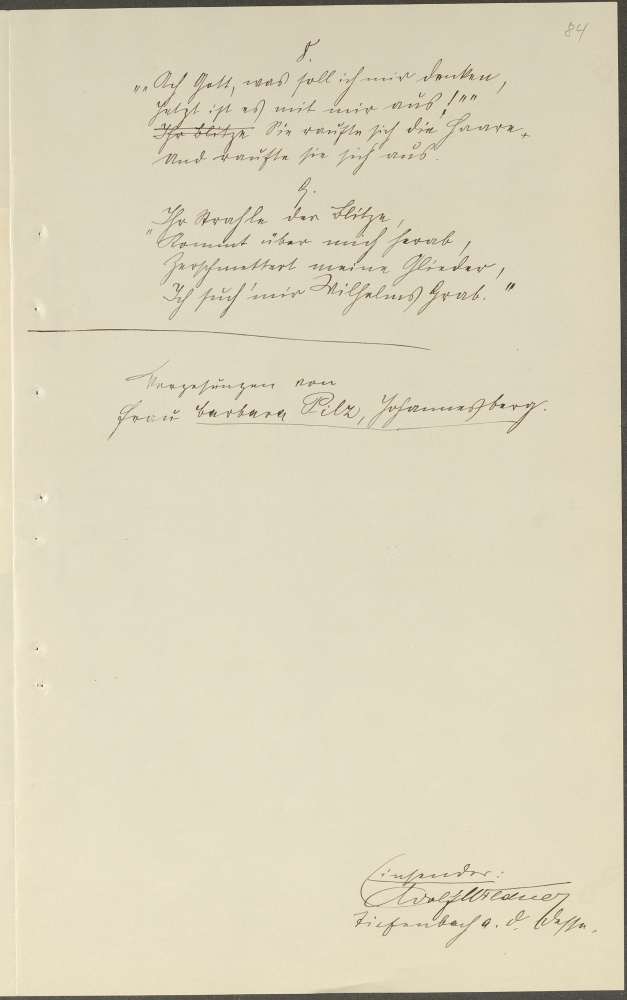 84
8.
„„Ach Gott, was soll ich mir denken,
Jetzt ist es mit mir aus!““
Ihr Blitze Sie raufte sich die Haare,
Und raufte sie sich aus.
9.
Ihr Strahle der Blitze,
„Kommt über mich herab,
Zerschmettert meine Glieder,
Ich such' mir Wilhelms Grab.“
Vorgesungen von
Frau Barbara Pilz, Johannesberg.
Einsender:
Adolf Wildner
Tiefenbach a. d. Desse.